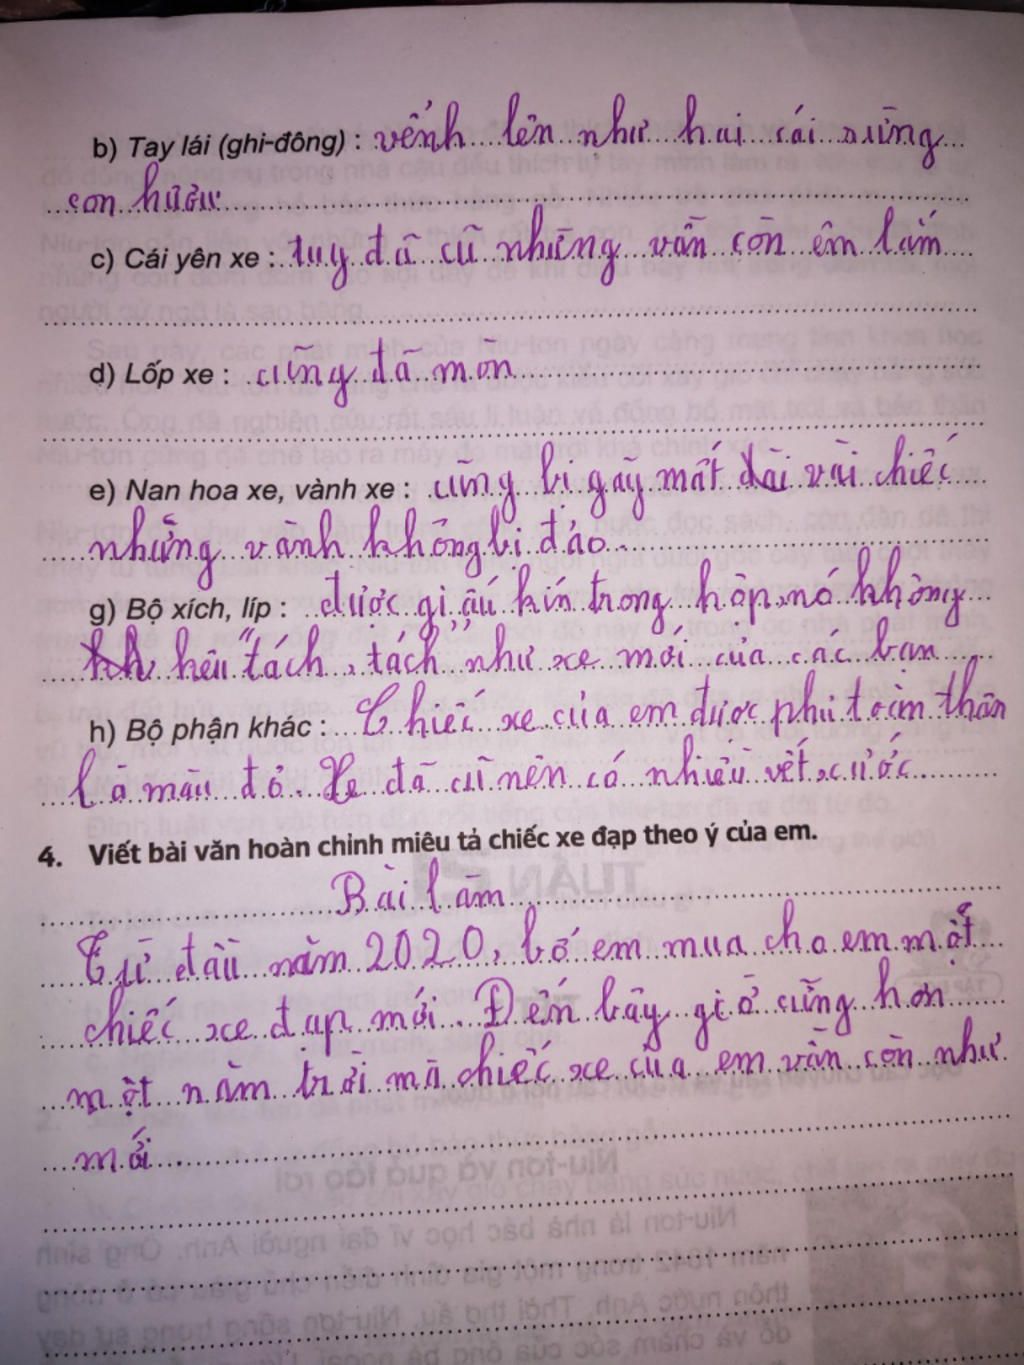 b) Tay lái (ghi-đông) : vểnh lên như hai cái sừng
con hươu
c) Cái yên xe : tuy đã cũ nhưng vẫn còn êm lắm
d) Lốp xe : cũng đã mòn
e) Nan hoa xe, vành xe : cũng bị gãy mất dài vài chiếc
nhưng vành không bị đảo.
g) Bộ xích, líp : được giấu kín trong hộp, nó không
kêu "tách, tách" như xe mới của các bạn
h) Bộ phận khác : Chiếc xe của em được phủ toàn thân
là màu đỏ. Xe đã cũ nên có nhiều vết xước
4. Viết bài văn hoàn chỉnh miêu tả chiếc xe đạp theo ý của em.
Bài làm
Từ đầu năm 2020, bố em mua cho em một
chiếc xe đạp mới. Đến bây giờ cũng hơn
một năm trời mà chiếc xe của em vẫn còn như
mới